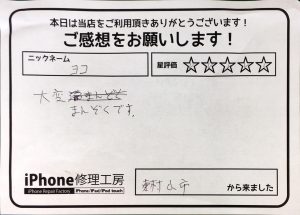 本日は当店をご利用頂きありがとうございます！
ご感想をお願いします！
ニックネーム
ヨコ
星評価 ☆☆☆☆☆
大変
まんぞくです。
iPhone修理工房
iPhone Repair Factory
iPhone/iPad/iPod touch
から来ました